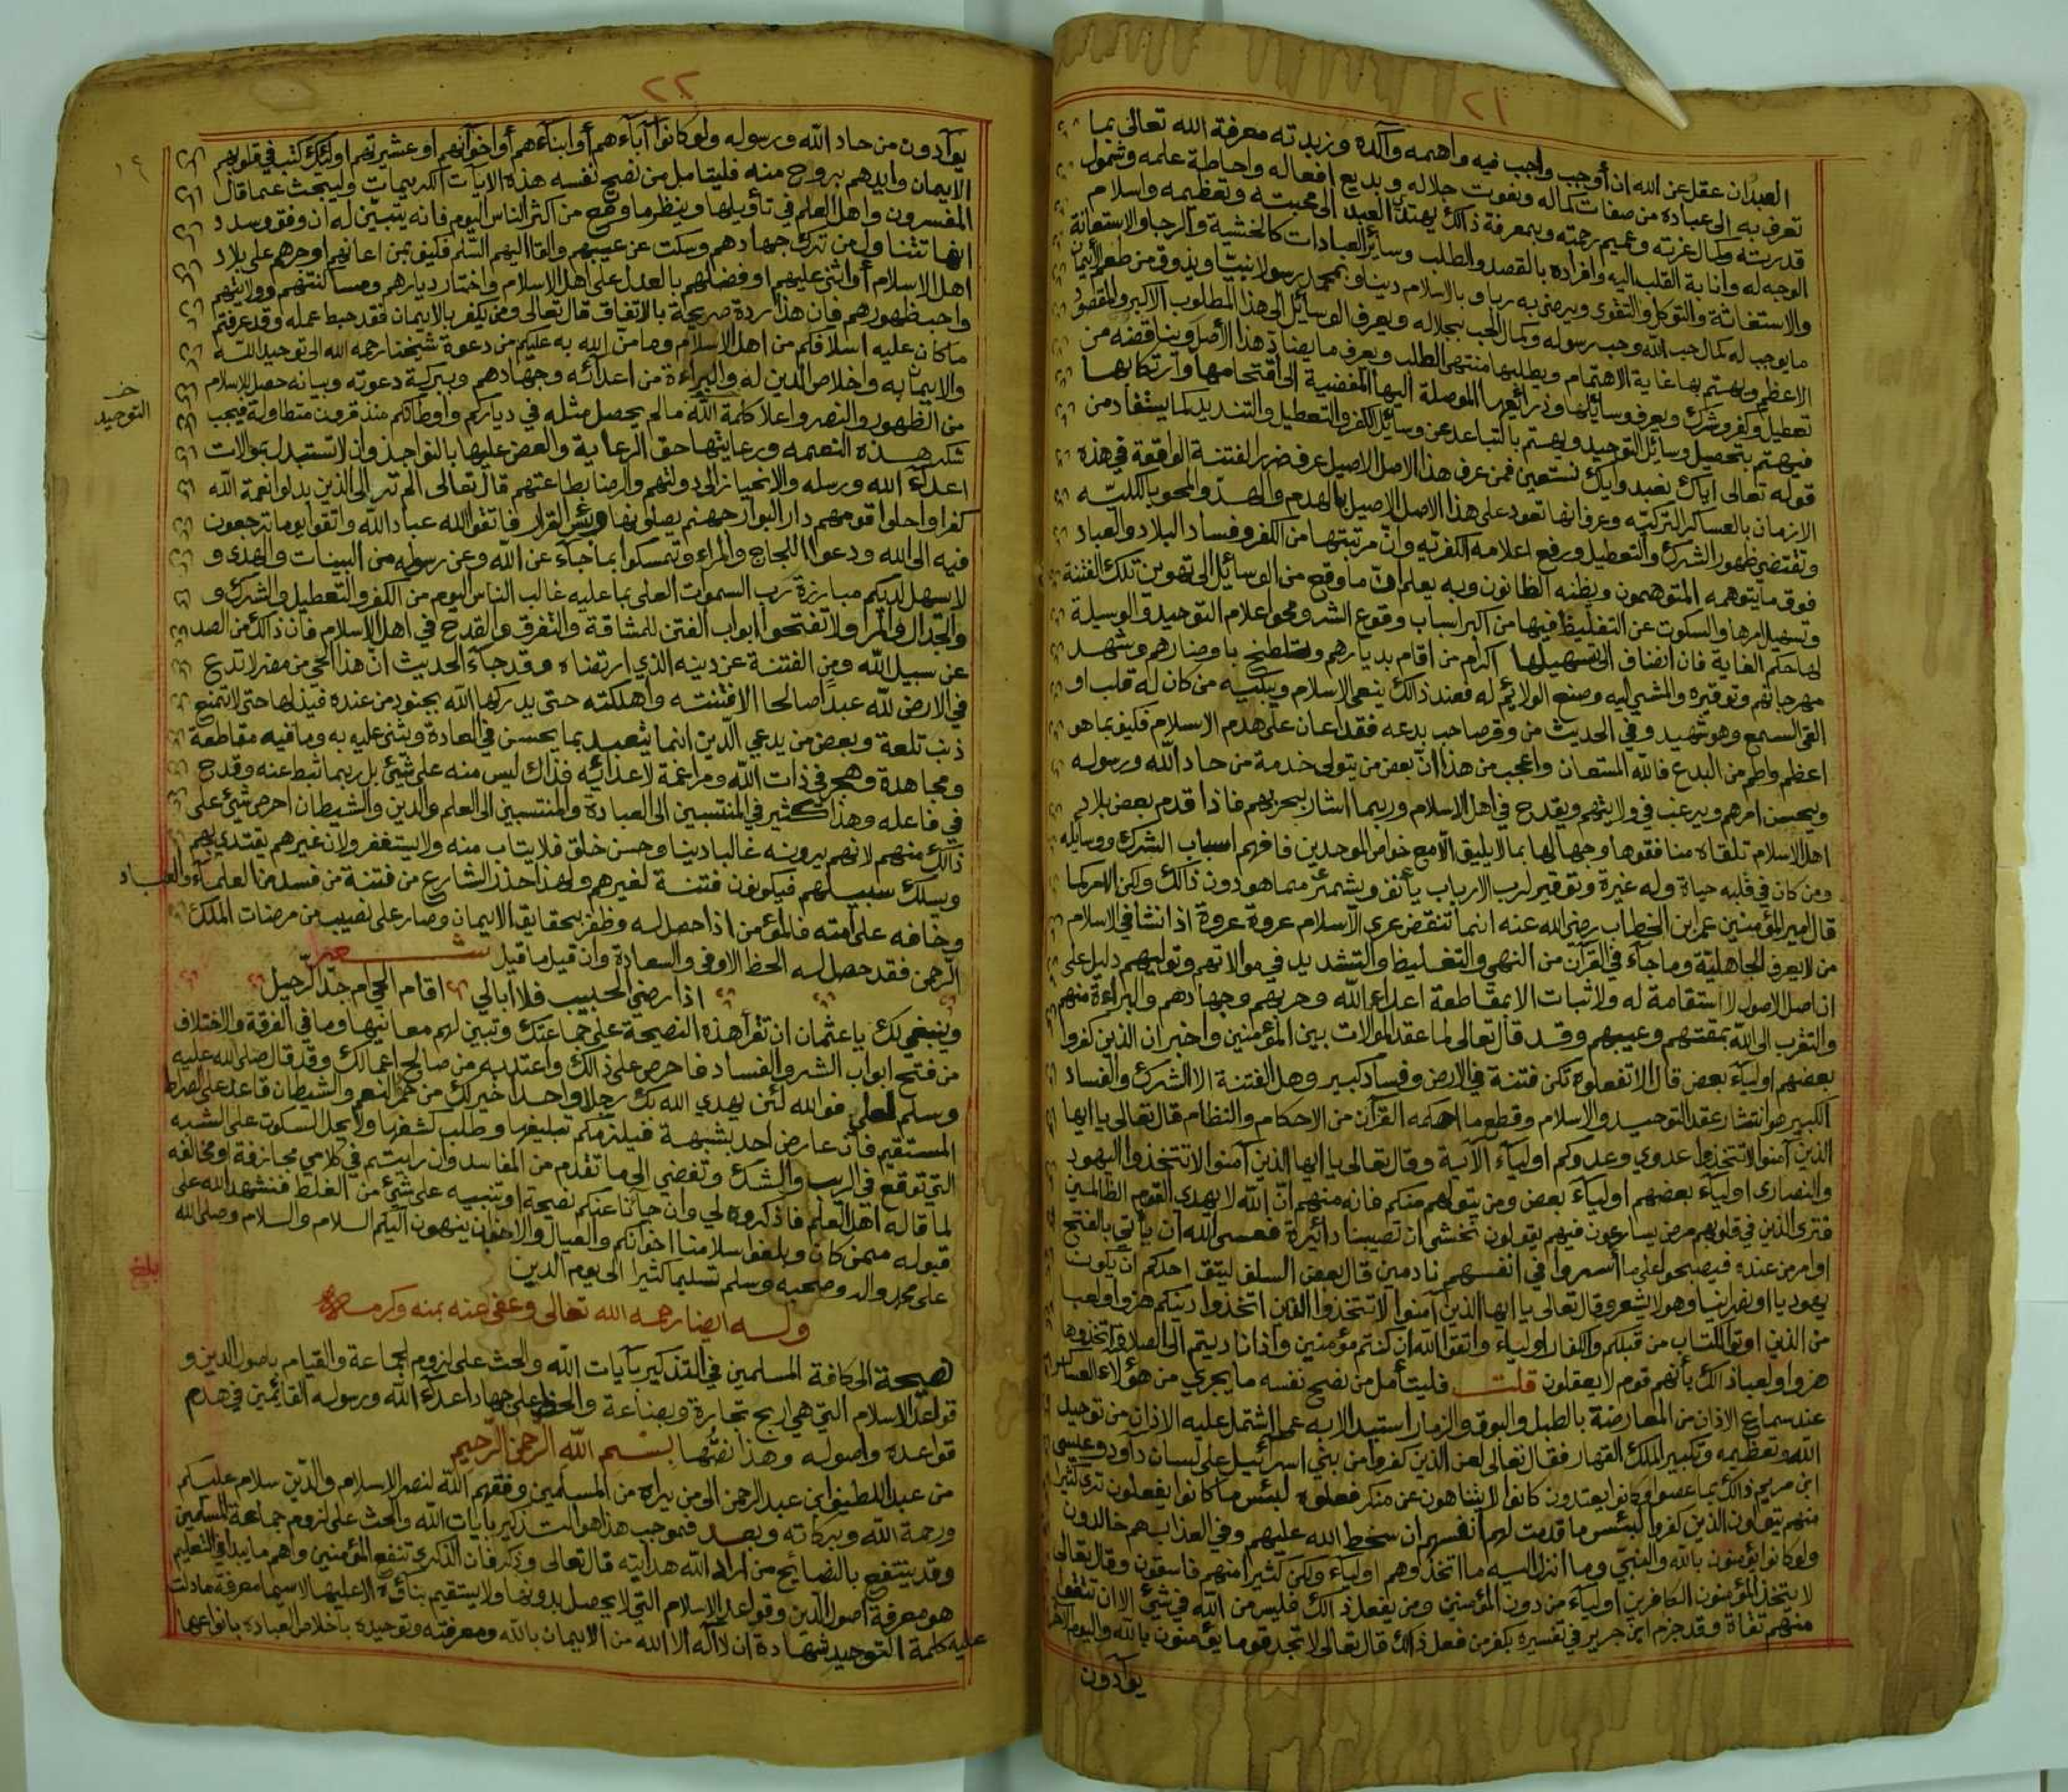 ٢١
العبد ان عقل عن الله ان أوجب واجب فيه واهمه وآكده وزبدته معرفة الله تعالى بما
تعرف به الى عباده من صفات كماله ونعوت جلاله وبديع افعاله واحاطة علمه وشمول
قدرته وكمال عزته وعميم رحمته وبمعرفة ذالك يهتدي العبد الى محبته وتعظيمه واسلام
الوجه له وانابة القلب اليه وافراده بالقصد والطلب وسائر العبادات كالخشية والرجا والاستعانة
والاستغاثة والتوكل والتقوى ويرضى به ربا وبالاسلام دينا وبمحمد رسولا نبيا ويذوق من طعم الايمان
ما يوجب له كمال حب الله وحب رسوله وكمال الحب بجلاله ويعرف الوسائل الى هذا المطلوب الاكبر والمقصود
الاعظم ويهتم بها غاية الاهتمام ويطلبها منتهى الطلب ويعرف ما يضاد هذا الأصل ويناقضه من
تعطيل وكفر وشرك ويعرف وسائلها وذرائعها الموصلة اليها المفضية الى اقتحامها وارتكابها
فيهتم بتحصيل وسائل التوحيد ويهتم بالتباعد عن وسائل الكفر والتعطيل والتنديد كما يستفاد من
قوله تعالى اياك نعبد واياك نستعين فمن عرف هذا الاصل الاصيل عرف ضرر الفتنة الواقعة في هذه
الازمان بالعساكر التركيه وعرف انها تعود على هذا الاصل الاصيل بالهدم والهد والمحو بالكليه
وتقتضي ظهور الشرك والتعطيل ورفع اعلامه الكفريه وان مرتبتها من الكفر وفساد البلاد والعباد
فوق ما يتوهمه المتوهمون ويظنه الظانون وبه يعلم ان ما وقع من الوسائل الى تهوين تلك الفتنة
وتسهيل امرها والسكوت عن التغليظ فيها من اكبر اسباب وقوع الشر ومحو اعلام التوحيد والوسيلة
لها حكم الغاية فان انضاف الى تسهيلها اكرام من اقام بديارهم وتلطخ باوضارهم وشهد
مهرجانهم وتوقيره والمشي اليه وصنع الولائم له فعند ذالك ينعى الاسلام ويبكيه من كان له قلب او
القى السمع وهو شهيد وفي الحديث من وقر صاحب بدعه فقد اعان على هدم الاسلام فكيف بما هو
اعظم واطم من البدع فالله المستعان واعجب من هذا ان بعض من يتولى خدمة من حاد الله ورسوله
ويحسن امرهم ويرغب في ولايتهم ويقدح في اهل الاسلام وربما اشار بحربهم فاذا قدم بعض بلاد
اهل الاسلام تلقاه منافقوها وجهالها بما لا يليق الا مع خواص الموحدين فافهم اسباب الشرك ووسايله
ومن كان في قلبه حياة وله غيرة وتوقير لرب الارباب يأنف ويشمئز مما هو دون ذالك ولكن الامر كما
قال امير المؤمنين عمر ابن الخطاب رضي الله عنه انما تنقض عرى الاسلام عروة عروة اذا نشا في الاسلام
من لا يعرف الجاهلية وما جآء في القرآن من النهي والتغليظ والتشديد في موالاتهم وتوليهم دليل على
ان اصل الاصول لا استقامة له ولا ثبات الا بمقاطعة اعداء الله وحربهم وجهادهم والبراءة منهم
والتقرب الى الله بمقتهم وعيبهم وقد قال تعالى لما عقد الموالات بين المؤمنين واخبر ان الذين كفروا
بعضهم اوليآء بعض قال الا تفعلوه تكن فتنة في الارض وفساد كبير وهل الفتنة الا الشرك والفساد
الكبير هو انتثار عقد التوحيد والاسلام وقطع ما احكمه القرآن من الاحكام والنظام قال تعالى يا ايها
الذين آمنوا لا تتخذوا عدوي وعدوكم اوليآء الآية وقال تعالى يا ايها الذين آمنوا لا تتخذوا اليهود
والنصارى اوليآء بعضهم اوليآء بعض ومن يتولهم منكم فانه منهم ان الله لا يهدي القوم الظالمين
فترى الذين في قلوبهم مرض يسارعون فيهم يقولون نخشى ان تصيبنا دائرة فعسى الله ان يأتي بالفتح
او امر من عنده فيصبحوا على ما أسروا في انفسهم نادمين قال بعض السلف ليتق احدكم ان يكون
يهوديا او نصرانيا وهو لا يشعر وقال تعالى يا ايها الذين آمنوا لا تتخذوا الذين اتخذوا دينكم هزوا ولعبا
من الذين اوتوا الكتاب من قبلكم والكفار اولياء واتقوا الله ان كنتم مؤمنين واذا ناديتم الى الصلاة اتخذوها
هزوا ولعبا ذالك بأنهم قوم لا يعقلون قلت فليتأمل من نصح نفسه ما يجري من هؤلاء العساكر
عند سماع الاذان من المعارضة بالطبل والبوق والزمار استبدالا به عما اشتمل عليه الاذان من توحيد
الله وتعظيمه وتكبير الملك القهار فقال تعالى لعن الذين كفروا من بني اسرائيل على لسان داود وعيسى
ابن مريم ذالك بما عصوا وكانوا يعتدون كانوا لا يتناهون عن منكر فعلوه لبئس ما كانوا يفعلون ترى كثيرا
منهم يتولون الذين كفروا لبئس ما قدمت لهم انفسهم ان سخط الله عليهم وفي العذاب هم خالدون
ولو كانوا يؤمنون بالله والنبي وما انزل اليه ما اتخذوهم اولياء ولكن كثيرا منهم فاسقون وقال تعالى
لا يتخذ المؤمنون الكافرين اوليآء من دون المؤمنين ومن يفعل ذالك فليس من الله في شئ الا ان تتقوا
منهم تقاة وقد جزم ابن جرير في تفسيره بكفر من فعل ذالك قال تعالى لا تجد قوما يؤمنون بالله واليوم الاخر
يوآدون
٢٢
يوآدون من حاد الله ورسوله ولو كانوا آبآءهم أو ابنآءهم أو اخوآنهم او عشيرتهم اولئك كتب في قلوبهم
الايمان وايدهم بروح منه فليتامل من نصح نفسه هذه الايات الكريمات وليبحث عما قال
المفسرون واهل العلم في تأويلها وينظر ما وقع من اكثر الناس اليوم فانه يتبين له ان وفق وسدد
انها تتناول من ترك جهادهم وسكت عن عيبهم والقا اليهم السلم فكيف بمن اعانهم او جرهم على بلاد
اهل الاسلام أو اثنى عليهم او فضلهم بالعدل على اهل الاسلام واختار ديارهم ومساكنتهم وولايتهم
واحب ظهورهم فان هذا ردة صريحة بالاتفاق قال تعالى ومن يكفر بالايمان فقد حبط عمله وقد عرفتم
ما كان عليه اسلافكم من اهل الاسلام وما من الله به عليكم من دعوة شيخنا رحمه الله الى توحيد الله
والايمان به واخلاص الدين له والبراءة من اعدآئه وجهادهم وببركة دعوته وبيانه حصل للاسلام
خـ التوحيد
من الظهور والنصر واعلا كلمة الله ما لم يحصل مثله في دياركم واوطانكم منذ قرون متطاولة فيجب
شكر هذه النعمه ورعايتها حق الرعاية والعض عليها بالنواجذ وان لا تستبدل بموالات
اعدآء الله ورسله والانحياز الى دولتهم والرضا بطاعتهم قال تعالى الم تر الى الذين بدلوا نعمة الله
كفرا واحلوا قومهم دار البوار جهنم يصلونها وبئس القرار فاتقوا الله عباد الله واتقوا يوما ترجعون
فيه الى الله ودعوا اللجاج والمراء وتمسكوا بما جآء عن الله وعن رسوله من البينات والهدى و
لا يسهل لديكم مبارزة رب السموات العلى بما عليه غالب الناس اليوم من الكفر والتعطيل والشرك و
والجدال والمرا ولا تفتحوا ابواب الفتن للمشاقة والتفرق والقدح في اهل الاسلام فان ذالك من الصد
عن سبيل الله ومن الفتنة عن دينه الذي ارتضاه وقد جآء الحديث ان هذا الحي من مضر لا تدع
في الارض لله عبدا صالحا الا فتنته واهلكته حتى يدركها الله بجنود من عنده فيذلها حتى لا تمنع
ذنب تلعة وبعض من يدعي الدين انما يتعبد بما يحسن في العادة ويثنى عليه به وما فيه مقاطعة
ومجاهدة وهجر في ذات الله ومراغمة لاعدائه فذاك ليس منه على شئ بل ربما ثبط عنه وقدح
في فاعله وهذا كثير في المنتسبين الى العبادة والمنتسبين الى العلم والدين والشيطان احرص شئ على
ذالك منهم لانهم يرونه غالبا دينا وحسن خلق فلا يتاب منه ولا يستغفر ولان غيرهم يقتدي بهم
ويسلك سبيلهم فيكونون فتنة لغيرهم ولهذا حذر الشارع من فتنة من فسد من العلمآء والعباد
وخافه على امته فالمؤمن اذا حصل له وظفر بحقايق الايمان وصار على نصيب من مرضات الملك
الرحمن فقد حصل له الحظ الاوفى والسعادة وان قيل ما قيل شعر
اذا رضي الحبيب فلا ابالي اقام الحي ام جد الرحيل
وينبغي لك يا عثمان ان تقرأ هذه النصيحة على جماعتك وتبين لهم معانيها وما في الفرقة والاختلاف
من فتح ابواب الشر والفساد فاحرص على ذالك واعتد به من صالح اعمالك وقد قال صلى الله عليه
وسلم لعلي فوالله لئن يهدي الله بك رجلا واحدا خير لك من حمر النعم والشيطان قاعد على الصراط
المستقيم فان عارض احد بشبهة فيلزمكم تبليغها وطلب كشفها ولا يحل السكوت على الشبه
التي توقع في الريب والشك وتفضي الى ما تقدم من المفاسد وان رايتم في كلامي مجازفة او مخالفه
لما قاله اهل العلم فاذكروه لي وان جآنا عنكم نصيحة او تنبيه على شئ من الغلط فنشهد الله على
قبوله ممن كان وبلغوا سلامنا اخوانكم والعيال والاخوان ينهون اليكم السلام والسلام وصلى الله
على محمد واله وصحبه وسلم تسليما كثيرا الى يوم الدين
بلغ
وله ايضا رحمه الله تعالى وعفى عنه بمنه وكرمه
نصيحة الى كافة المسلمين في التذكير بآيات الله والحث على لزوم الجماعة والقيام باصول الدين و
قواعد الاسلام التي هي اربح تجارة وبضاعة والحظ على جهاد اعدآء الله ورسوله القائمين في هدم
قواعده واصوله وهذا نصها بسم الله الرحمن الرحيم
من عبد اللطيف ابن عبد الرحمن الى من يراه من المسلمين وفقهم الله لنصر الاسلام والدين سلام عليكم
ورحمة الله وبركاته وبعد فموجب هذا هو التذكير بآيات الله والحث على لزوم جماعة المسلمين
وقد ينتفع بالنصايح من اراد الله هدايته قال تعالى وذكر فان الذكرى تنفع المؤمنين واهم ما يبدا في التعليم
هو معرفة اصول الدين وقواعد الاسلام التي لا يحصل بدونها ولا يستقيم بناؤه الا عليها لاسيما معرفة ما دلت
عليه كلمة التوحيد شهادة ان لا اله الا الله من الايمان بالله ومعرفته وتوحيده باخلاص العباده بانواعها